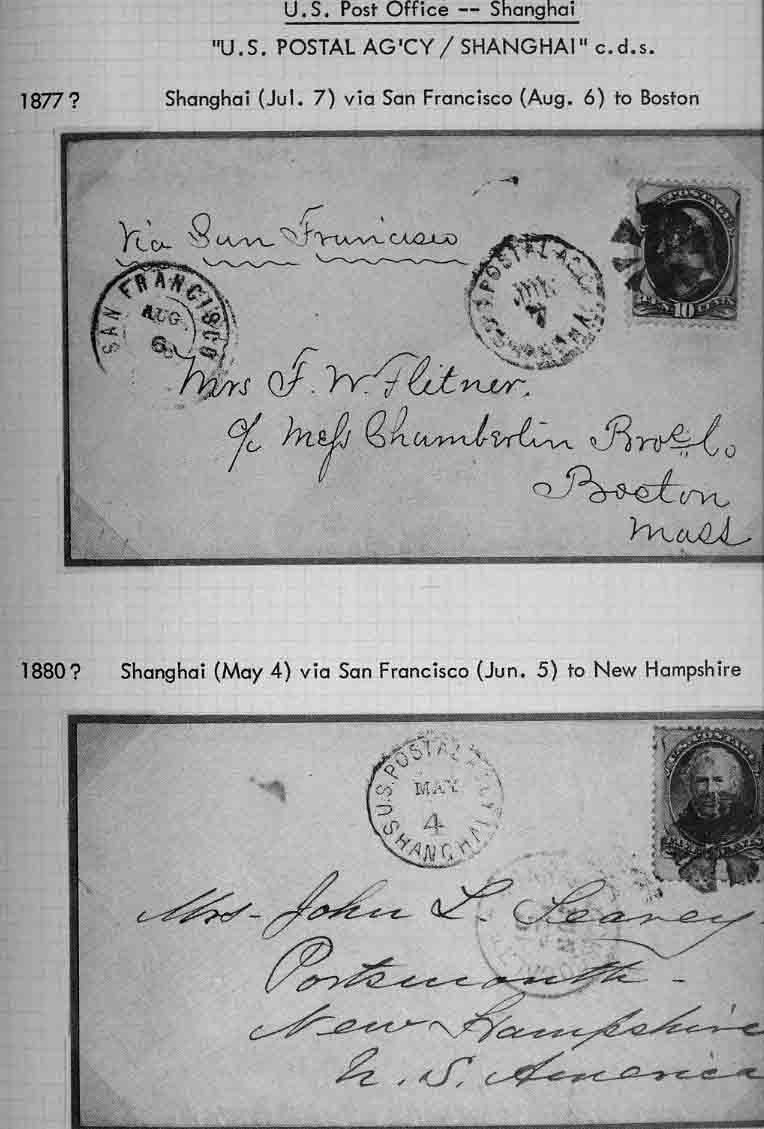 U.S. Post Office -- Shanghai
"U.S. POSTAL AG'CY / SHANGHAI" c.d.s.
1877? Shanghai (Jul. 7) via San Francisco (Aug. 6) to Boston
Via San Francisco
U.S. POSTAL AG'CY
JUL
7
SAN FRANCISCO
AUG
6
10
Mrs F. W. Flitner.
c/o Mess Chamberlin Bros & Co
Boston
Mass
1880? Shanghai (May 4) via San Francisco (Jun. 5) to New Hampshire
U.S. POSTAL AG'CY
MAY
4
SHANGHAI
Mrs - John L. Seavey
Portsmouth -
New Hampshire
U. S. America